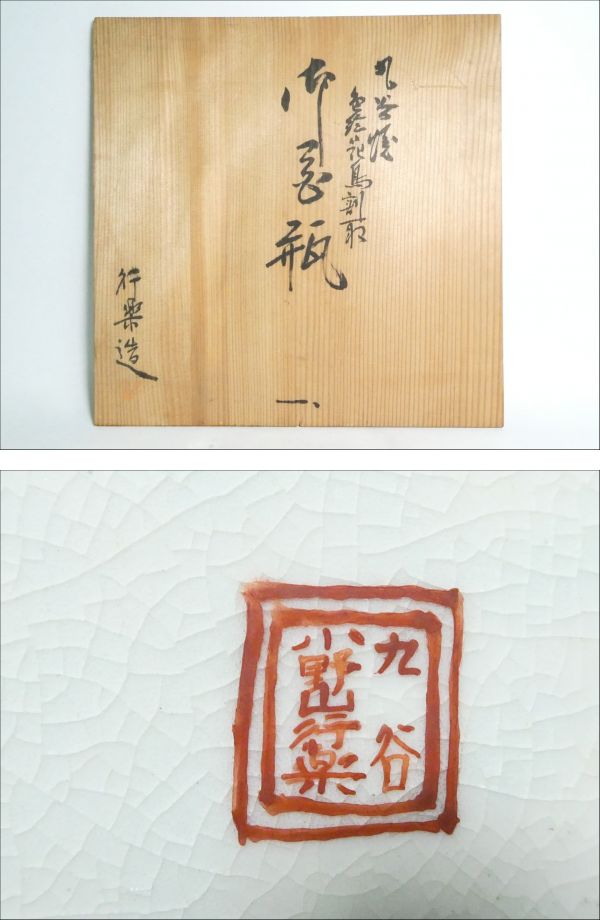 九谷焼
金彩花鳥割取
御花瓶
一、
行楽造
九谷
小野山行楽